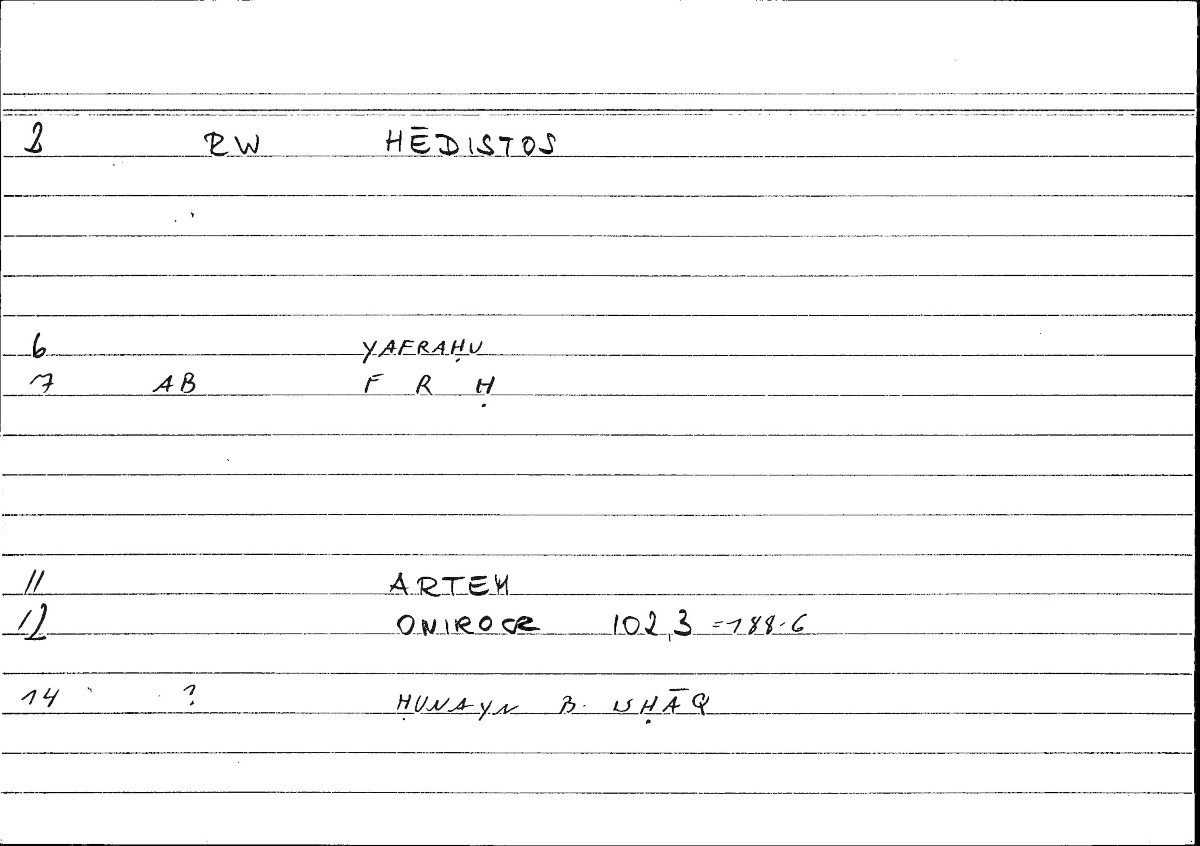 2 RW HĒDISTOS
6 YAFRAḤU
7 AB F R Ḥ
11 ARTEM
12 ONIROCR 102,3 =188.6
14 ? ḤUNAYN B. ISḤĀQ